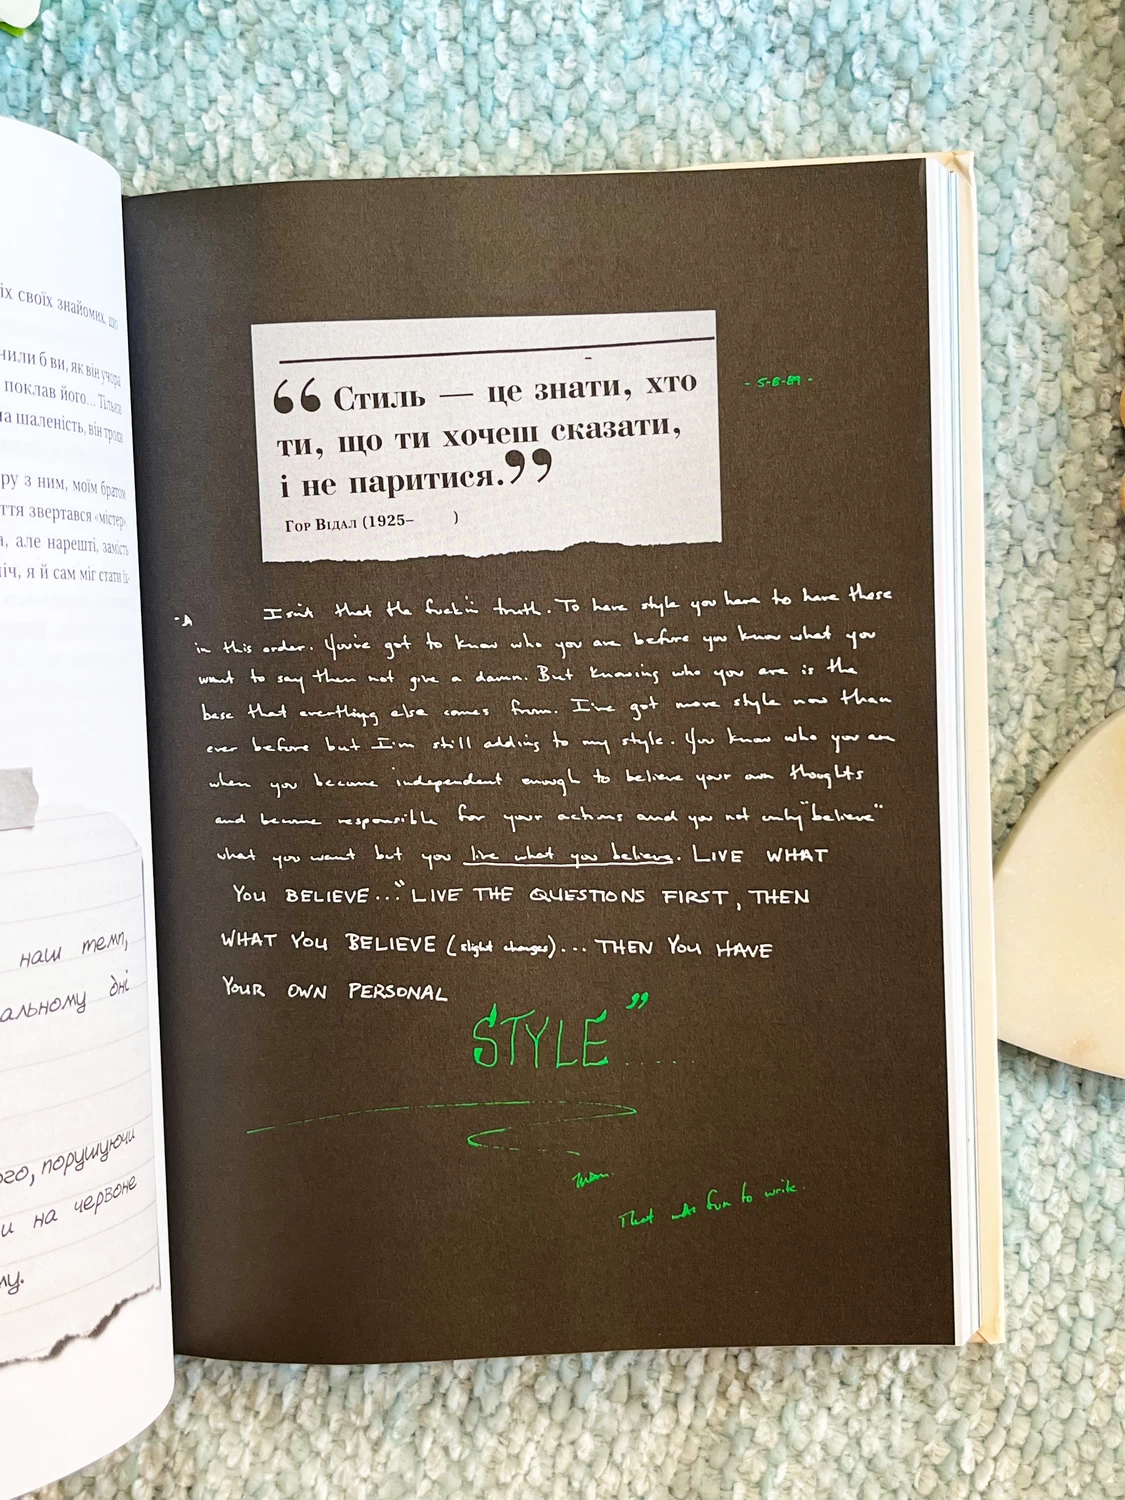 іх своїх знайомих, що
чили б ви, як він учора
поклав його... Тільки
на шаленість, він трохи
ру з ним, моїм братом
ття звертався «містер»,
а, але нарешті, замість
іч, я й сам міг стати їі-
наш темп,
альному дні
ого, порушуючи
и на червоне
му.
“Стиль — це знати, хто
ти, що ти хочеш сказати,
і не паритися.”
Гор Відал (1925–      )
- 5-8-89 -
Isn't that the fuckin truth. To have style you have to have these
in this order. You've got to know who you are before you know what you
want to say then not give a damn. But knowing who you are is the
base that everthing else comes from. I've got more style now than
ever before but I'm still adding to my style. You know who you are
when you become independent enough to believe your own thoughts
and become responsible for your actions and you not only "believe"
what you want but you live what you believe. LIVE WHAT
YOU BELIEVE..." LIVE THE QUESTIONS FIRST, THEN
WHAT YOU BELIEVE (slight changes)... THEN YOU HAVE
YOUR OWN PERSONAL
STYLE".....
That was fun to write.